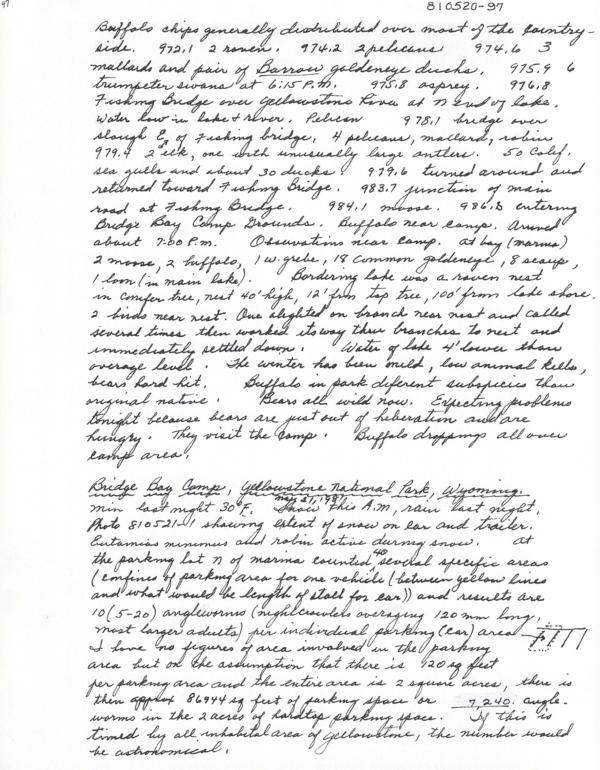 97
810520-97
Buffalo chips generally distributed over most of the country-
side. 972.1 2 raven. 974.2 2 pelicans 974.6 3
mallards and pair of Barrow goldeneye ducks. 975.9 6
trumpeter swans at 6:15 P.M. 975.8 osprey. 976.8
Fishing Bridge over Yellowstone River at N end of lake.
Water low in lake & river. Pelican 978.1 bridge over
slough E, of Fishing bridge, 4 pelicans, mallard, robin
979.4 2 elk, one with unusually large antlers. 50 Calif.
sea gulls and about 30 ducks. 979.6 turned around and
returned toward Fishing Bridge. 983.7 junction of main
road at Fishing Bridge. 984.1 moose. 986.5 entering
Bridge Bay Camp Grounds. Buffalo near camp. Arrived
about 7:00 P.m. Observations near camp. At bay (marina)
2 moose, 2 buffalo, 1 w. grebe, 18 common goldeneye, 8 scaup,
1 loon (in main lake). Bordering lake was a raven nest
in conifer tree, nest 40' high, 12' from top tree, 100' from lake shore.
2 birds near nest. One alighted on branch near nest and called
several times then worked its way thru branches to nest and
immediately settled down. Water of lake 4' lower than
average level. The winter has been mild, low animal kills,
bears hard hit. Buffalo in park diferent subspecies than
original native. Bears all wild now. Expecting problems
tonight because bears are just out of hiberation and are
hungry. They visit the camp. Buffalo droppings all over
camp area.
Bridge Bay Camp, Yellowstone National Park, Wyoming
May 21, 1981
min last night 30°F. Snow this A.M, rain last night.
Photo 810521-1 showing extent of snow on car and trailer.
Eutamias minimus and robin active during snow. At
the parking lot N of marina counted 40 several specific areas
(confines of parking area for one vehicle (between yellow lines
and what would be length of stall for car)) and results are
10 (5-20) angleworms (nightcrawlers averaging 120 mm long,
most larger adults) per individual parking (car) area
I have no figures of area involved in the parking
area but on the assumption that there is 120 sq feet
per parking area and the entire area is 2 square acres, there is
then approx 86944 sq feet of parking space or 7,240. angle-
worms in the 2 acres of hardtop parking space. If this is
timed by all inhabital area of Yellowstone, the number would
be astronomical.